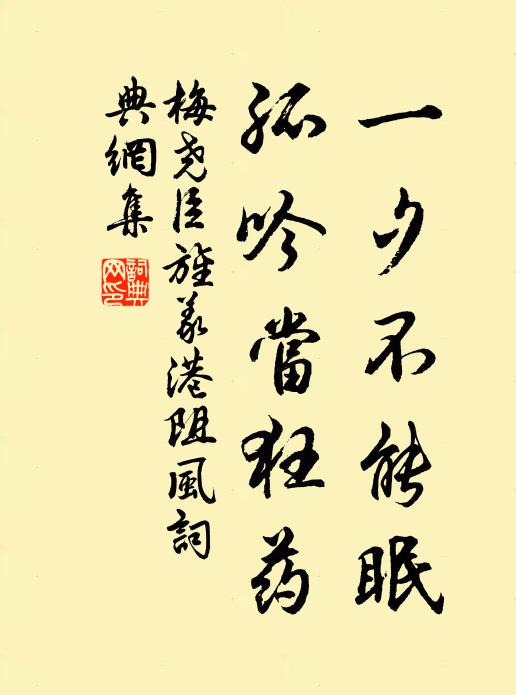 一夕不能眠
孤吟當狂药
梅尧臣旌义港阻風詞
典網集
詞典
网印